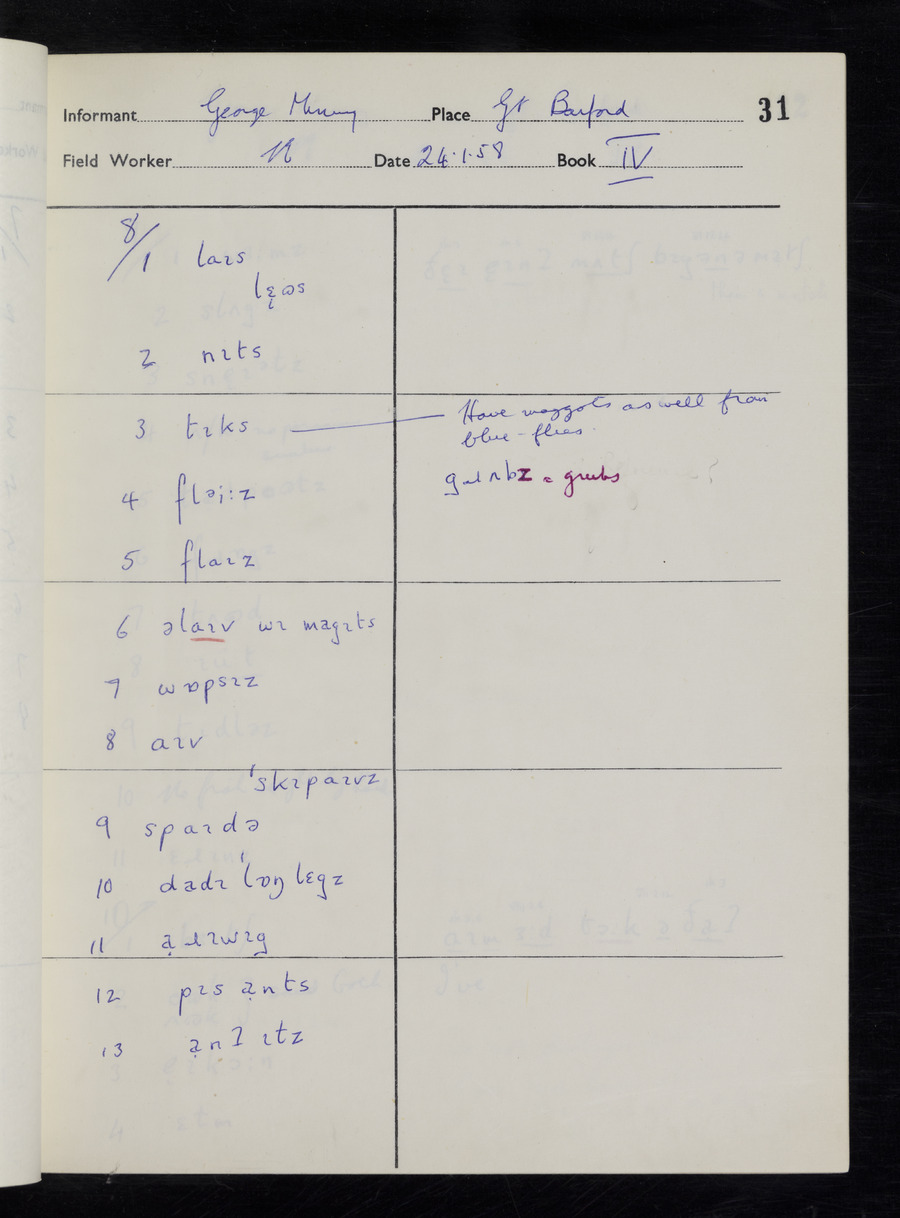 Informant George Place Gt Barford 31
Field Worker N Date 24.1.58 Book IV
8/1 laɪs
lɛ̣ɷs
2 nɪts
3 tɪks
Have maggots as well from
blue-flies.
4 fləi̩:z
gɹʌbz = grubs
5 flaɪz
6 əlaɪv wɪ magɪts
7 wɒpsɪz
8 aɪv
ˈskɪpaɪvz
9 spaɪdə
10 dadɪ ˈlɒŋ lɛgz
11 ạɹɪwɪg
12 pɪs ạnts
13 ạnʔɪtz